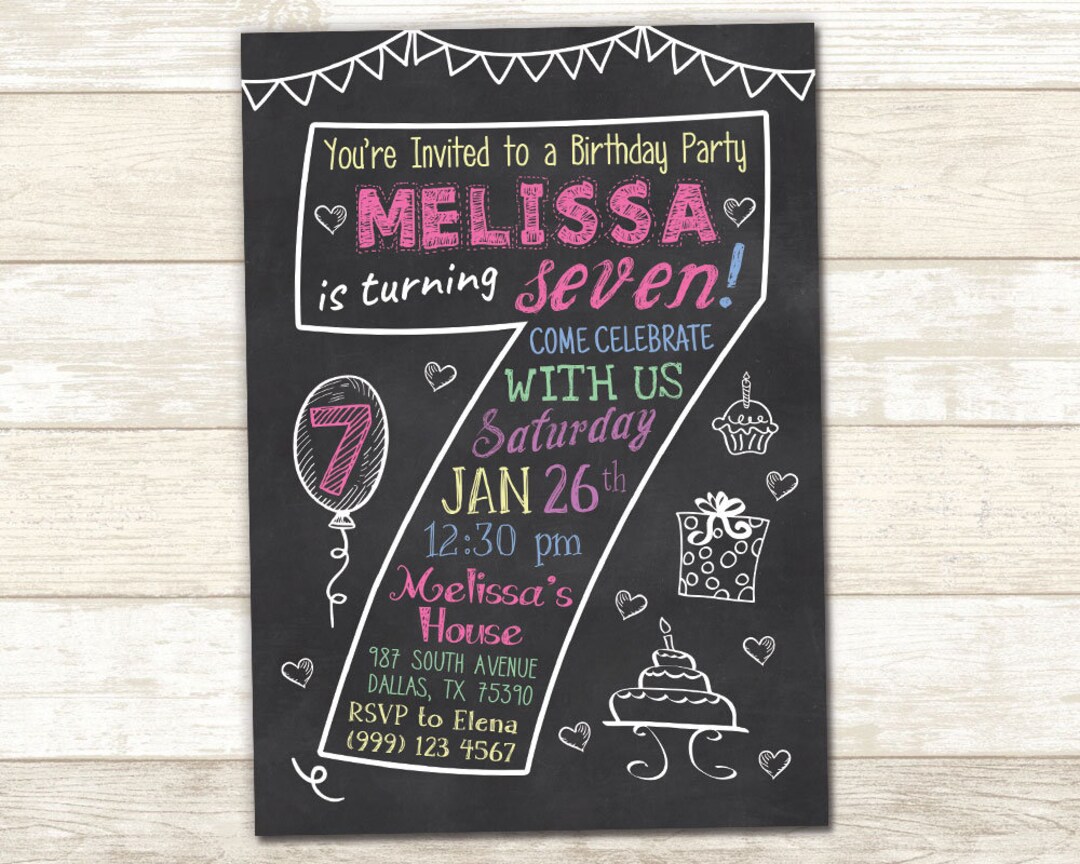 You're Invited to a Birthday Party
MELISSA
is turning seven!
COME CELEBRATE
WITH US
Saturday
JAN 26th
12:30 pm
Melissa's
House
987 SOUTH AVENUE
DALLAS, TX 75390
RSVP to Elena
(999) 123 4567
7